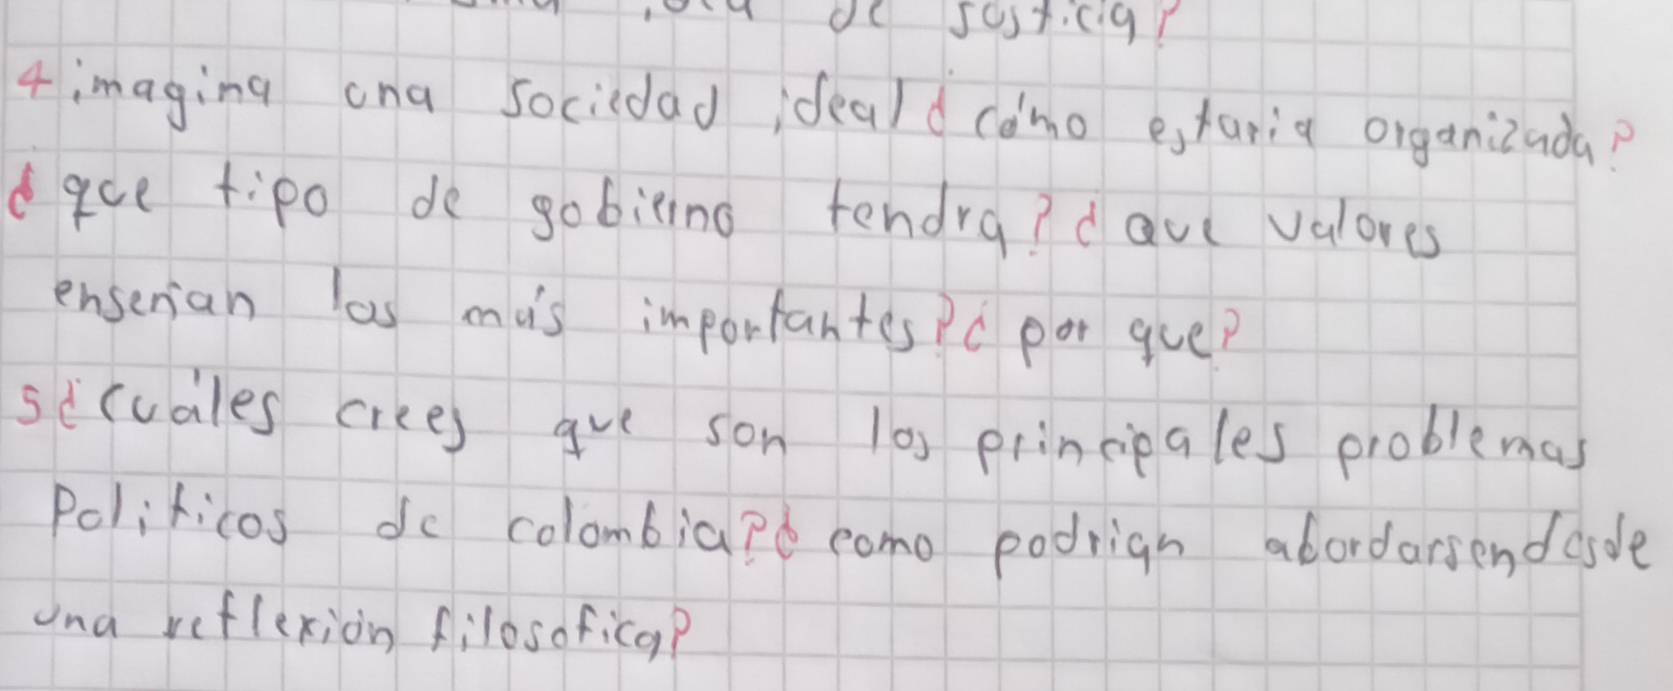 de justicia?
4 imagina una sociedad ideal ¿cómo estaria organizada?
¿que tipo de gobierno tendra? ¿ que valores
enseñan las más importantes? ¿ por que?
5 ¿cuáles crees que son los principales problemas
Politicos de colombia? ¿ como podrian abordarsen desde
una reflexión filosofica?